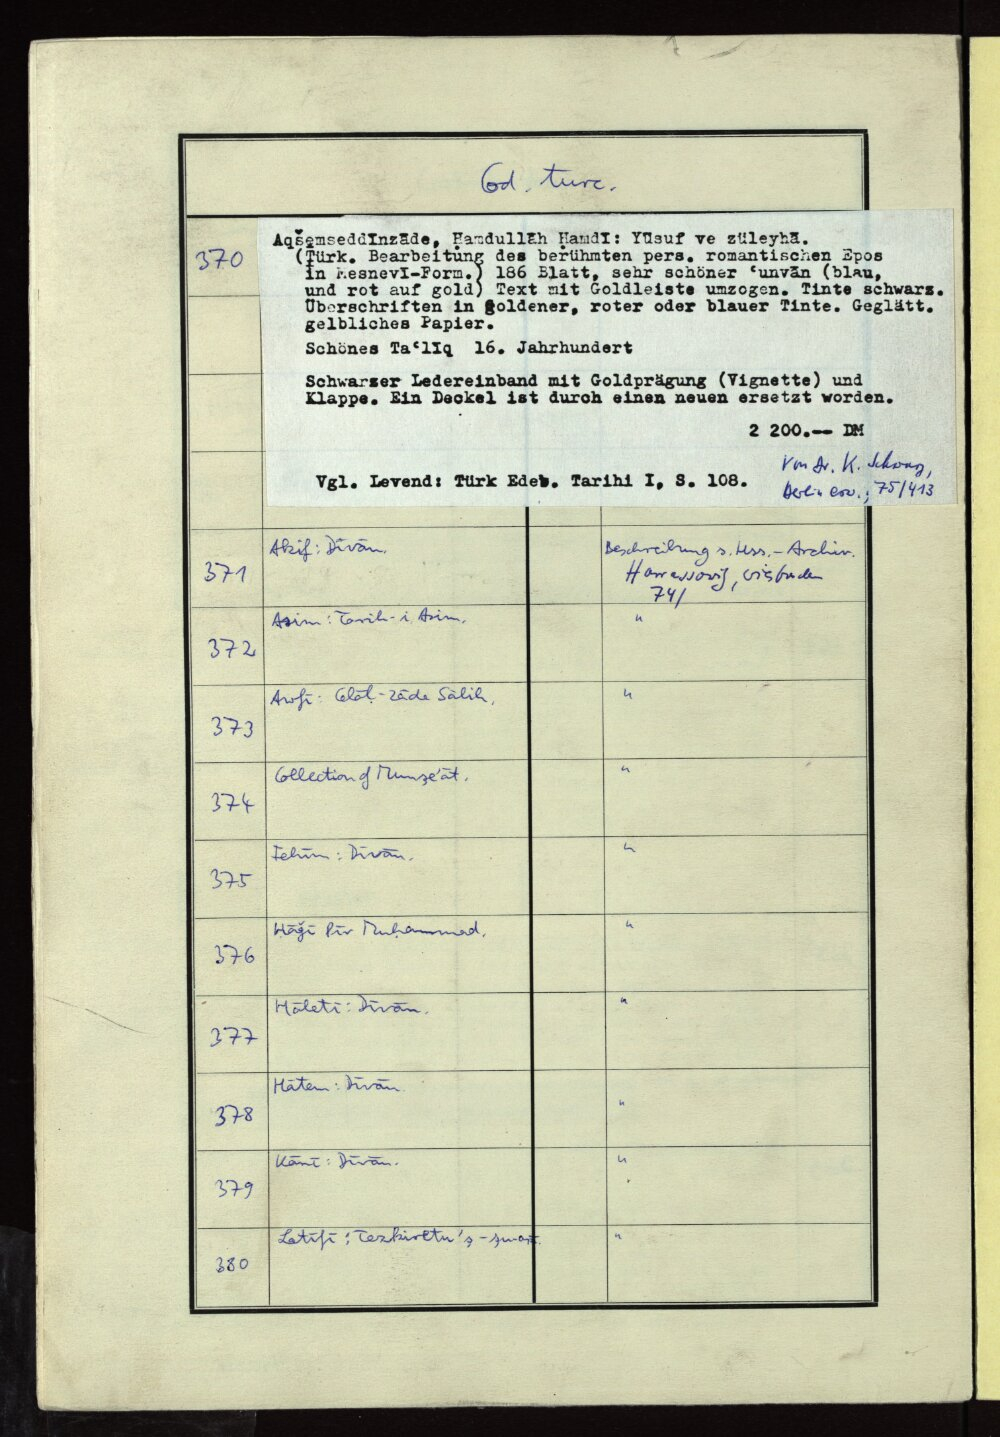 Cod. turc.
370
Aqšemseddīnzāde, Ḥamdullāh Ḥamdī: Yūsuf ve züleyḫā.
(Türk. Bearbeitung des berühmten pers. romantischen Epos
in Mesnevī-Form.) 186 Blatt, sehr schöner ʿunvān (blau,
und rot auf gold) Text mit Goldleiste umzogen. Tinte schwarz.
Überschriften in goldener, roter oder blauer Tinte. Geglätt.
gelbliches Papier.
Schönes Taʿlīq 16. Jahrhundert
Schwarzer Ledereinband mit Goldprägung (Vignette) und
Klappe. Ein Deckel ist durch einen neuen ersetzt worden.
2 200.-- DM
Vgl. Levend: Türk Edeb. Tarihi I, S. 108.
von Dr. K. Schwarz,
Berlin erw.; 75/413
371
Akif: Dīvān.
Beschreibung s. Hss.-Archiv.
Harrassowitz, Wiesbaden
74/
372
Asim: Tarih-i Asim.
"
373
Celāl-zāde Sālih.
"
374
Collection of Munşe'āt.
"
375
Fehīm: Dīvān.
"
376
Ḥāǧǧī Pīr Muḥammad.
"
377
Hāletī: Dīvān.
"
378
Hātem: Dīvān.
"
379
Kānī: Dīvān.
"
380
Latīfī: Tezkiretu'ş-şuarā.
"